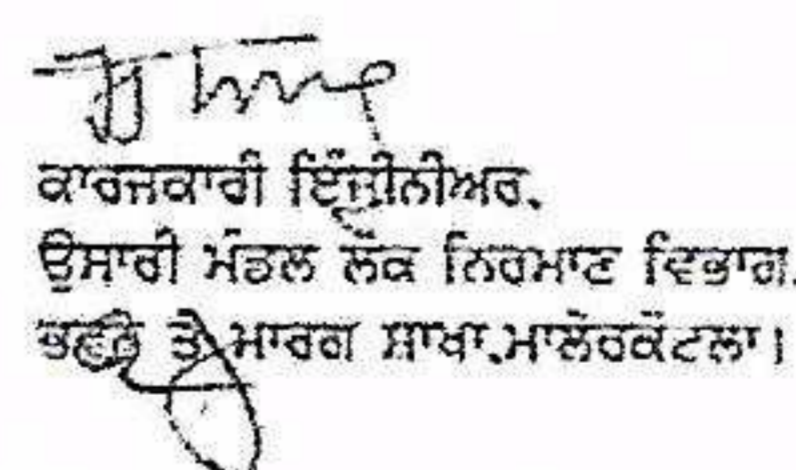 ਕਾਰਜਕਾਰੀ ਇੰਜੀਨੀਅਰ,
ਉਸਾਰੀ ਮੰਡਲ ਲੋਕ ਨਿਰਮਾਣ ਵਿਭਾਗ,
ਤੇ ਮਾਰਗ ਸ਼ਾਖਾ,ਮਾਲੇਰਕੋਟਲਾ।